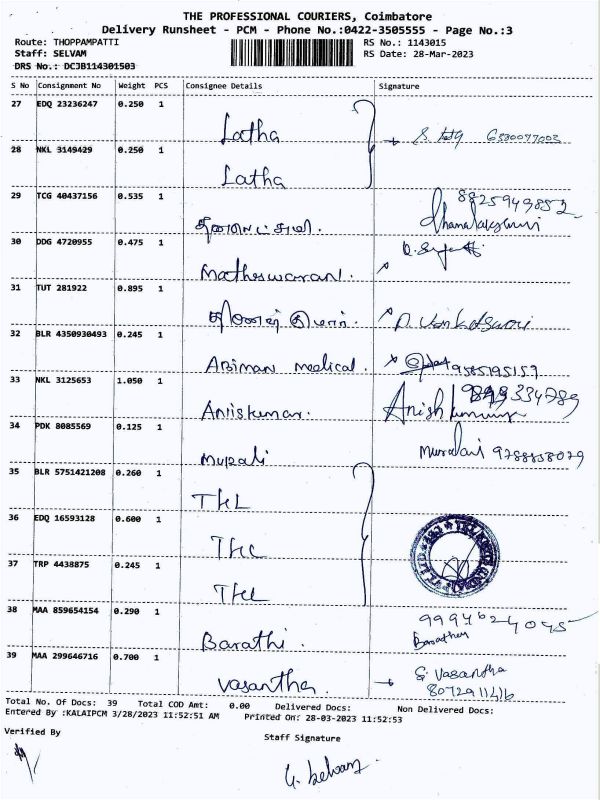 THE PROFESSIONAL COURIERS, Coimbatore
Delivery Runsheet - PCM - Phone No.:0422-3505555 - Page No.:3
Route: THOPPAMPATTI RS No.: 1143015
Staff: SELVAM RS Date: 28-Mar-2023
DRS No.: DCJB114301503
S No Consignment No Weight PCS Consignee Details Signature
27 EDQ 23236247 0.250 1
Latha
28 NKL 3149429 0.250 1
Latha
29 TCG 40437156 0.535 1
8825949852
Dhanalakshmi
30 DDG 4720955 0.475 1
Matheswaran.
31 TUT 281922 0.895 1
32 BLR 4350930493 0.245 1
Abiman medical. 9585195157
33 NKL 3125653 1.050 1
Aniskumar. Anish
34 PDK 8085569 0.125 1
Murali Murali
35 BLR 5751421208 0.260 1
TKL
36 EDQ 16593128 0.600 1
37 TRP 4438875 0.245 1
TKL
38 MAA 859654154 0.290 1
Barathi. 9994624045
39 MAA 299646716 0.700 1
Vasantha. S. Vasantha
Total No. Of Docs: 39 Total COD Amt: 0.00 Delivered Docs: Non Delivered Docs:
Entered By :KALAIPCM 3/28/2023 11:52:51 AM Printed On: 28-03-2023 11:52:53
Verified By
Staff Signature